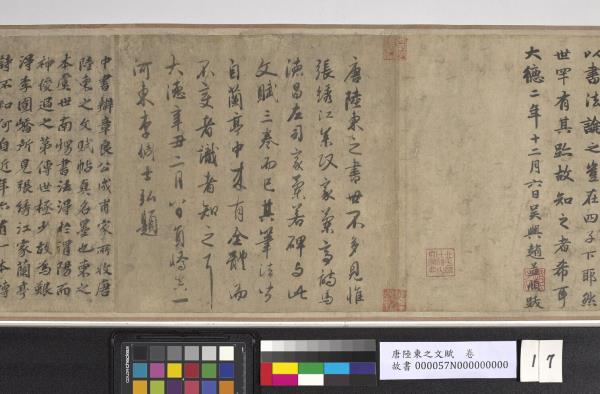 以書法論之豈在四子下耶然
世罕有其跡故知之者希耳
大德二年十二月六日吳興趙孟頫跋
唐陸柬之書世不多見惟
張綉江參政家蘭亭詩馬
昌左司家碑与此
文賦三卷而已其筆法皆
自蘭亭中來有全體而
不變者識者知之耳
大德辛丑二月八日員嶠真一
河東李倜士弘題
中書辦章公咸甫家所收唐
陸柬之文賦帖真名墨也柬之
本虞世南甥書法得於渭陽而
神俊過之第傳世極少故為艱
得李圎嶠所見張綉江家蘭亭
詩不知何自近年亦有一本傳
唐陸柬之文賦 卷
故書 000057N000000000
17